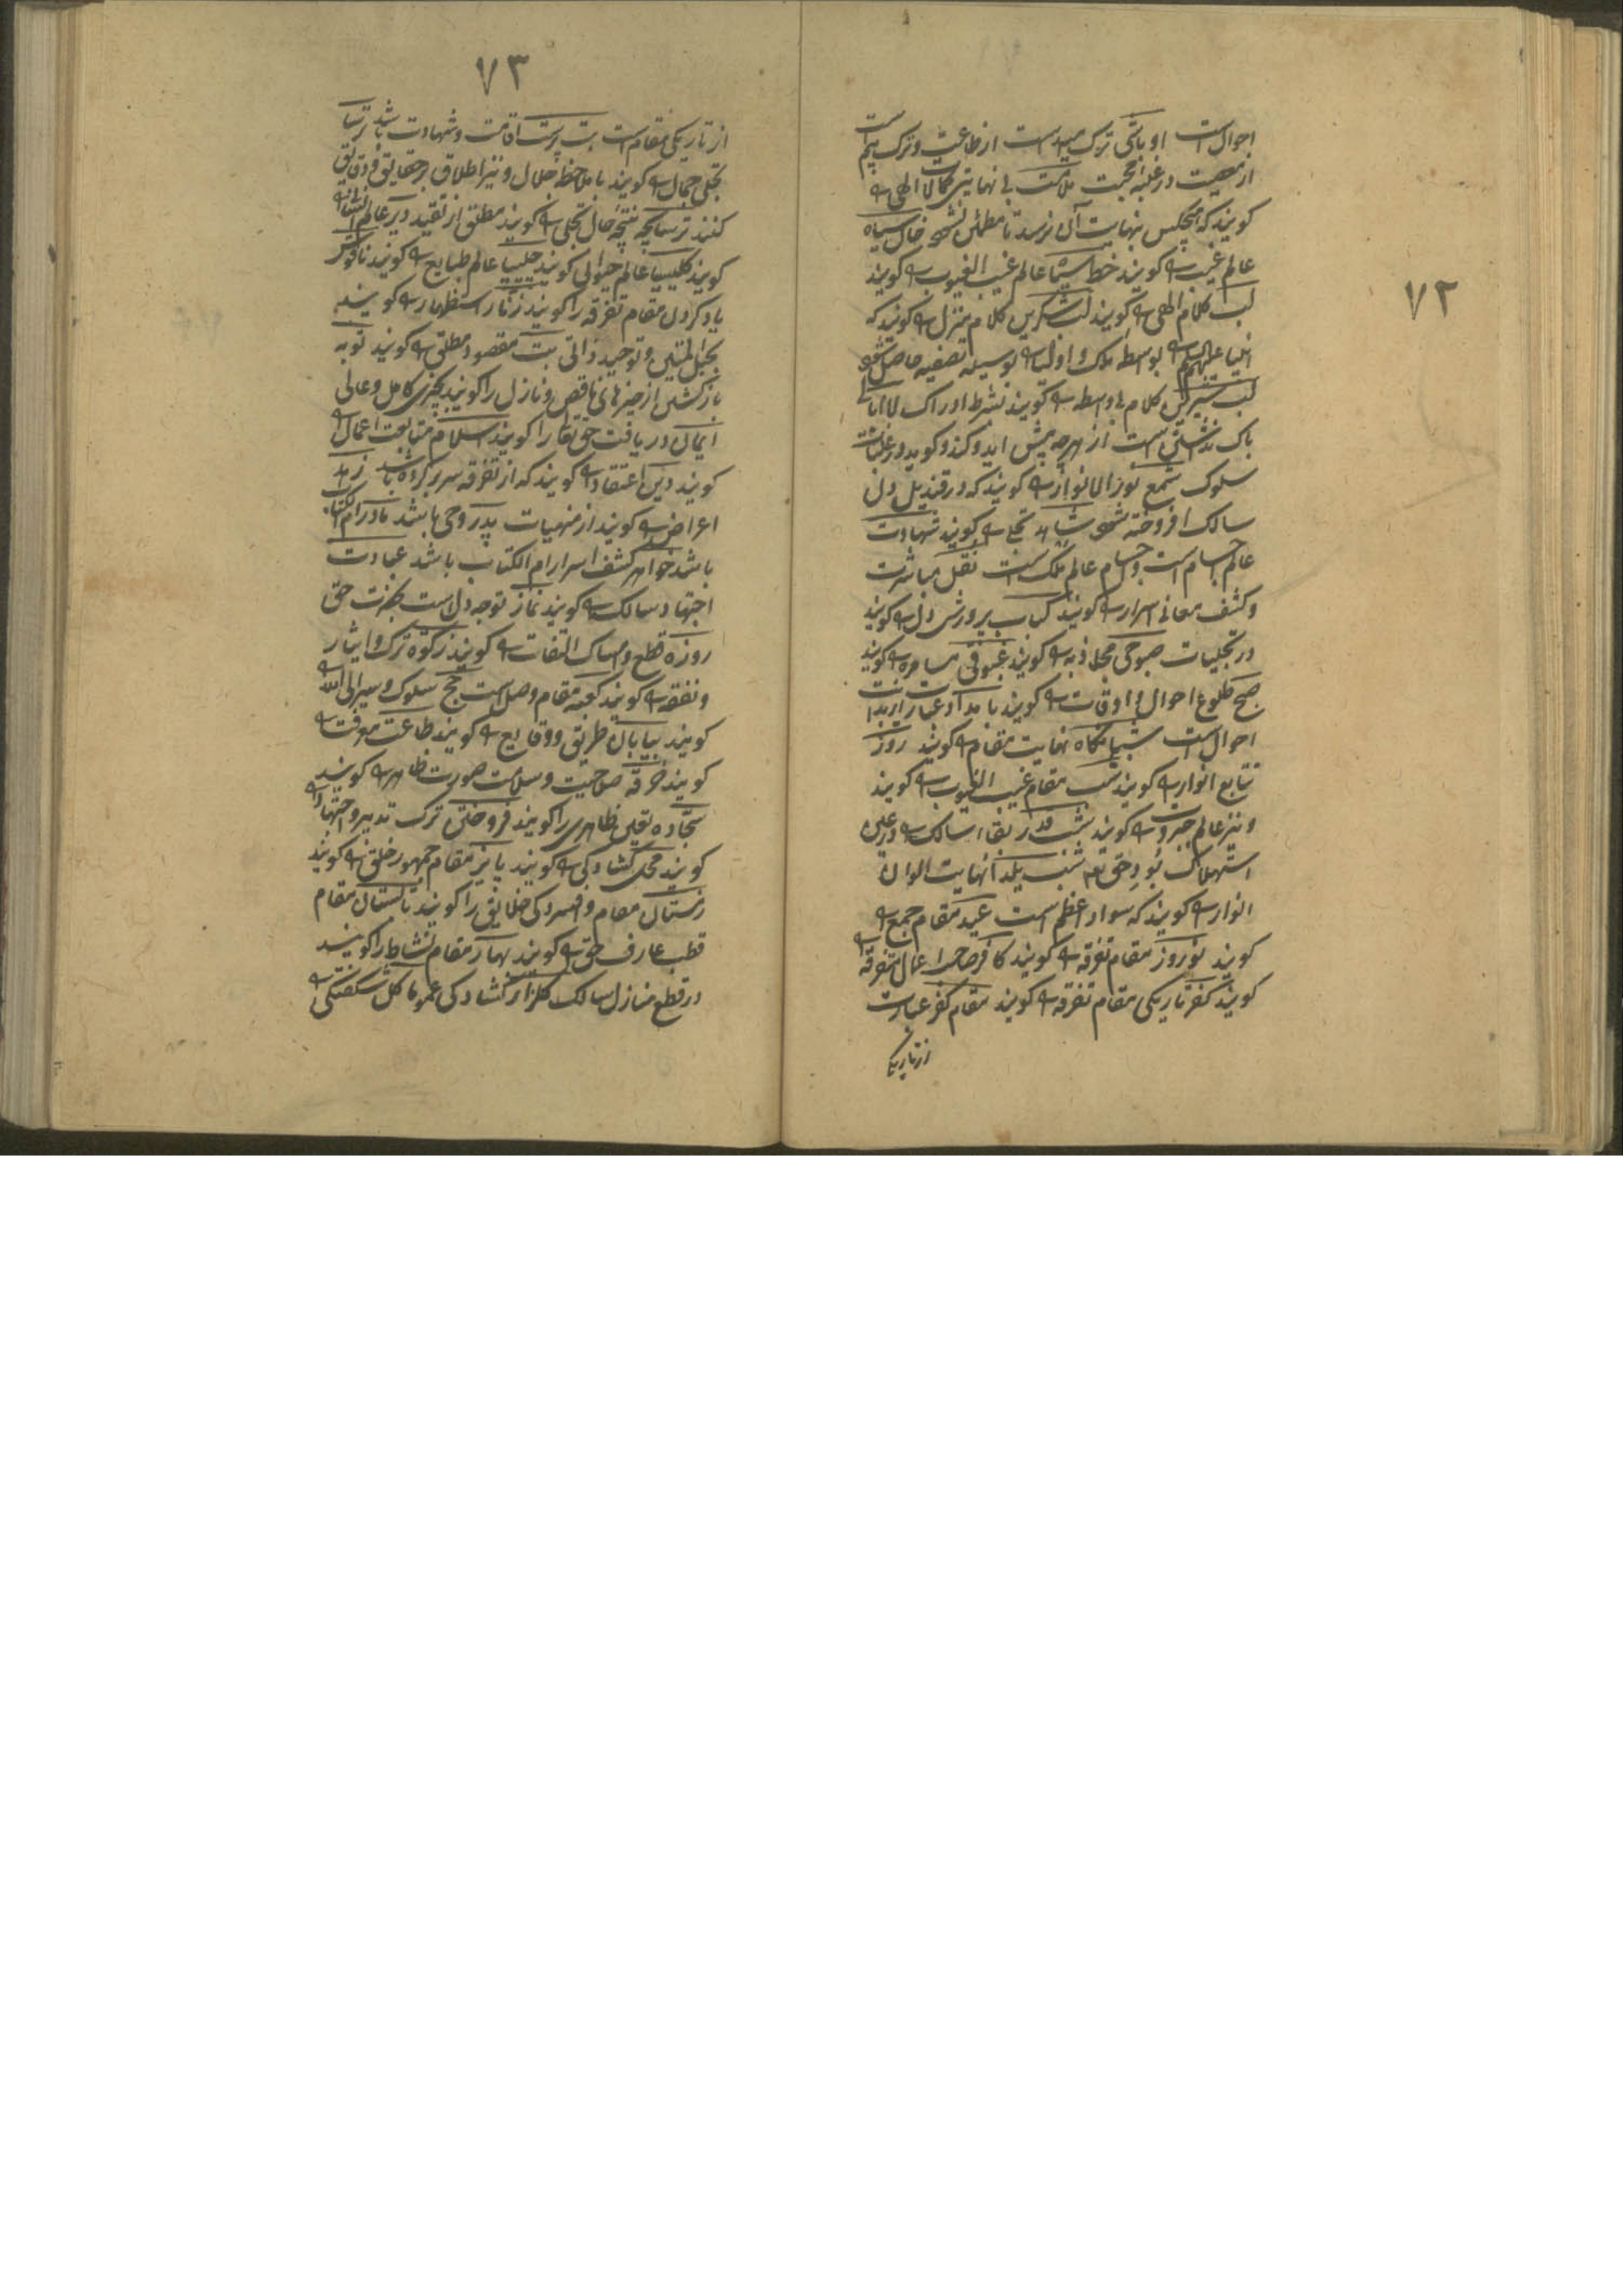 ۷۲
احوال است اوباشی ترک امید است از طاعت و ترک بیم است
از معصیت در غلبه محبت ملامت بی نهایتی کمالات الهی
گویند که هیچکس بنهایت آن نرسد تا مطمئن شود خال سیاه
عالم غیب گویند خط عالم غیب الغیوب گویند
لب کلام الهی گویند لب شکرین کلام منزل گویند که
انبیا علیهم بواسطه ملک و اولیا بوسیله تصفیه حاصل شود
لب شیرین کلام بی واسطه گویند بشرط ادراک
باک نداشتن است از هرچه پیش آید و کند و گوید در غلبات
سلوک شمع نور الانوار گویند که در قندیل دل
سالک افروخته شود شاهد تجلی گویند شهادت
عالم اجسام است و اجسام عالم ملک است نقل مباشرت
و کشف معانی اسرار گویند کباب پرورش دل گویند
در تجلیات صبوحی گویند غبوقی مسامره گویند
صبح طلوع احوال و اوقات گویند بامداد عبارت از بدایت
احوال است شبانگاه نهایت مقام گویند روز
تتابع انوار گویند شب مقام غیب الغیوب گویند
و نیز عالم جبروت گویند شب قدر بقا سالک در عین
استهلاک بوجود حق تع شب یلدا نهایت الوان
انوار گویند که سواد اعظم است عید مقام جمع
گویند نوروز مقام تفرقه گویند کافر صاحب اعمال تفرقه
گویند کفر تاریکی مقام تفرقه گویند مقام کفر عبارت
از تاریکی
۷۳
از تاریکی مقام است بت پرست اقامت و شهادت باشد ترسا
تجلی جمال گویند با ملاحظه جلال و نیز اطلاق بر حقایق و دقایق
کنند ترسابچه نتیجه حال تجلی گویند مطلق از تقید دیر عالم انسانی
گویند کلیسیا عالم حیوانی گویند چلیپا عالم طبایع گویند ناقوس
یاد کردن مقام تفرقه را گویند زنار استظهار گویند
بحبل المتین و توحید ذاتی بت مقصود مطلق گویند توبه
بازگشتن از چیزهای ناقص و نازل را گویند بچیزی کامل و عالی
ایمان دریافت حق تعا را گویند اسلام متابعت اعمال
گویند دین اعتقاد گویند که از تفرقه سر بر کرده باشد زهد
اعراض گویند از منهیات پدر روحی باشد مادر ام الکتاب
باشد خواهر کشف اسرار ام الکتاب باشد عبادت
اجتهاد سالک گویند نماز توجه دل است بحضرت حق
روزه قطع و امساک التفات گویند زکوة ترک و ایثار
و نفقه گویند کعبه مقام وصل است حج سلوک و سیر الی الله
گویند بیابان طریق و وقایع گویند طاعت معرفت
گویند خرقه صلاحیت و سلامت صورت ظاهر گویند
سجاده تعین ظاهری را گویند فروختن ترک تدبیر و اجتهاد
گویند محک کشادکی گویند پائیز مقام جمهور خلق گویند
زمستان مقام و افسردکی خلایق را گویند تابستان مقام
قطب عارف حق گویند بهار مقام نشاط را گویند
در قطع منازل سالک گلزار کشادکی عموما گل شکفتگی